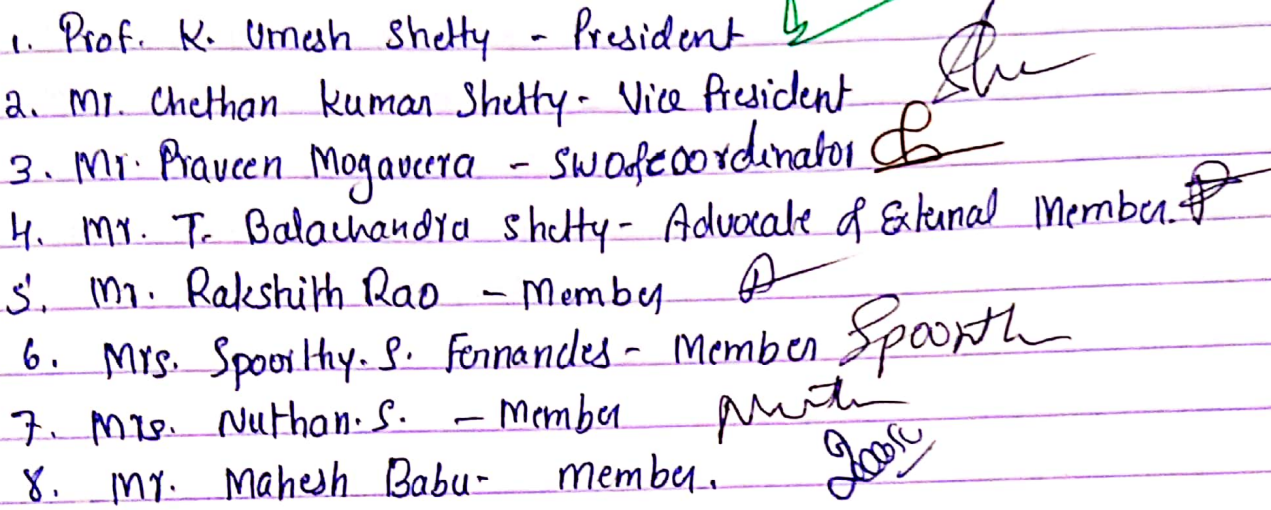 1. Prof. K. Umesh Shetty - President
2. Mr. Chethan Kumar Shetty - Vice President
3. Mr. Praveen Mogaveera - SWO coordinator
4. Mr. T. Balachandra Shetty - Advocate & External Member.
5. Mr. Rakshith Rao - Member
6. Mrs. Spoorthy. S. Fernandes - Member Spoorth
7. Mrs. Nuthan. S. - Member
8. Mr. Mahesh Babu - member.